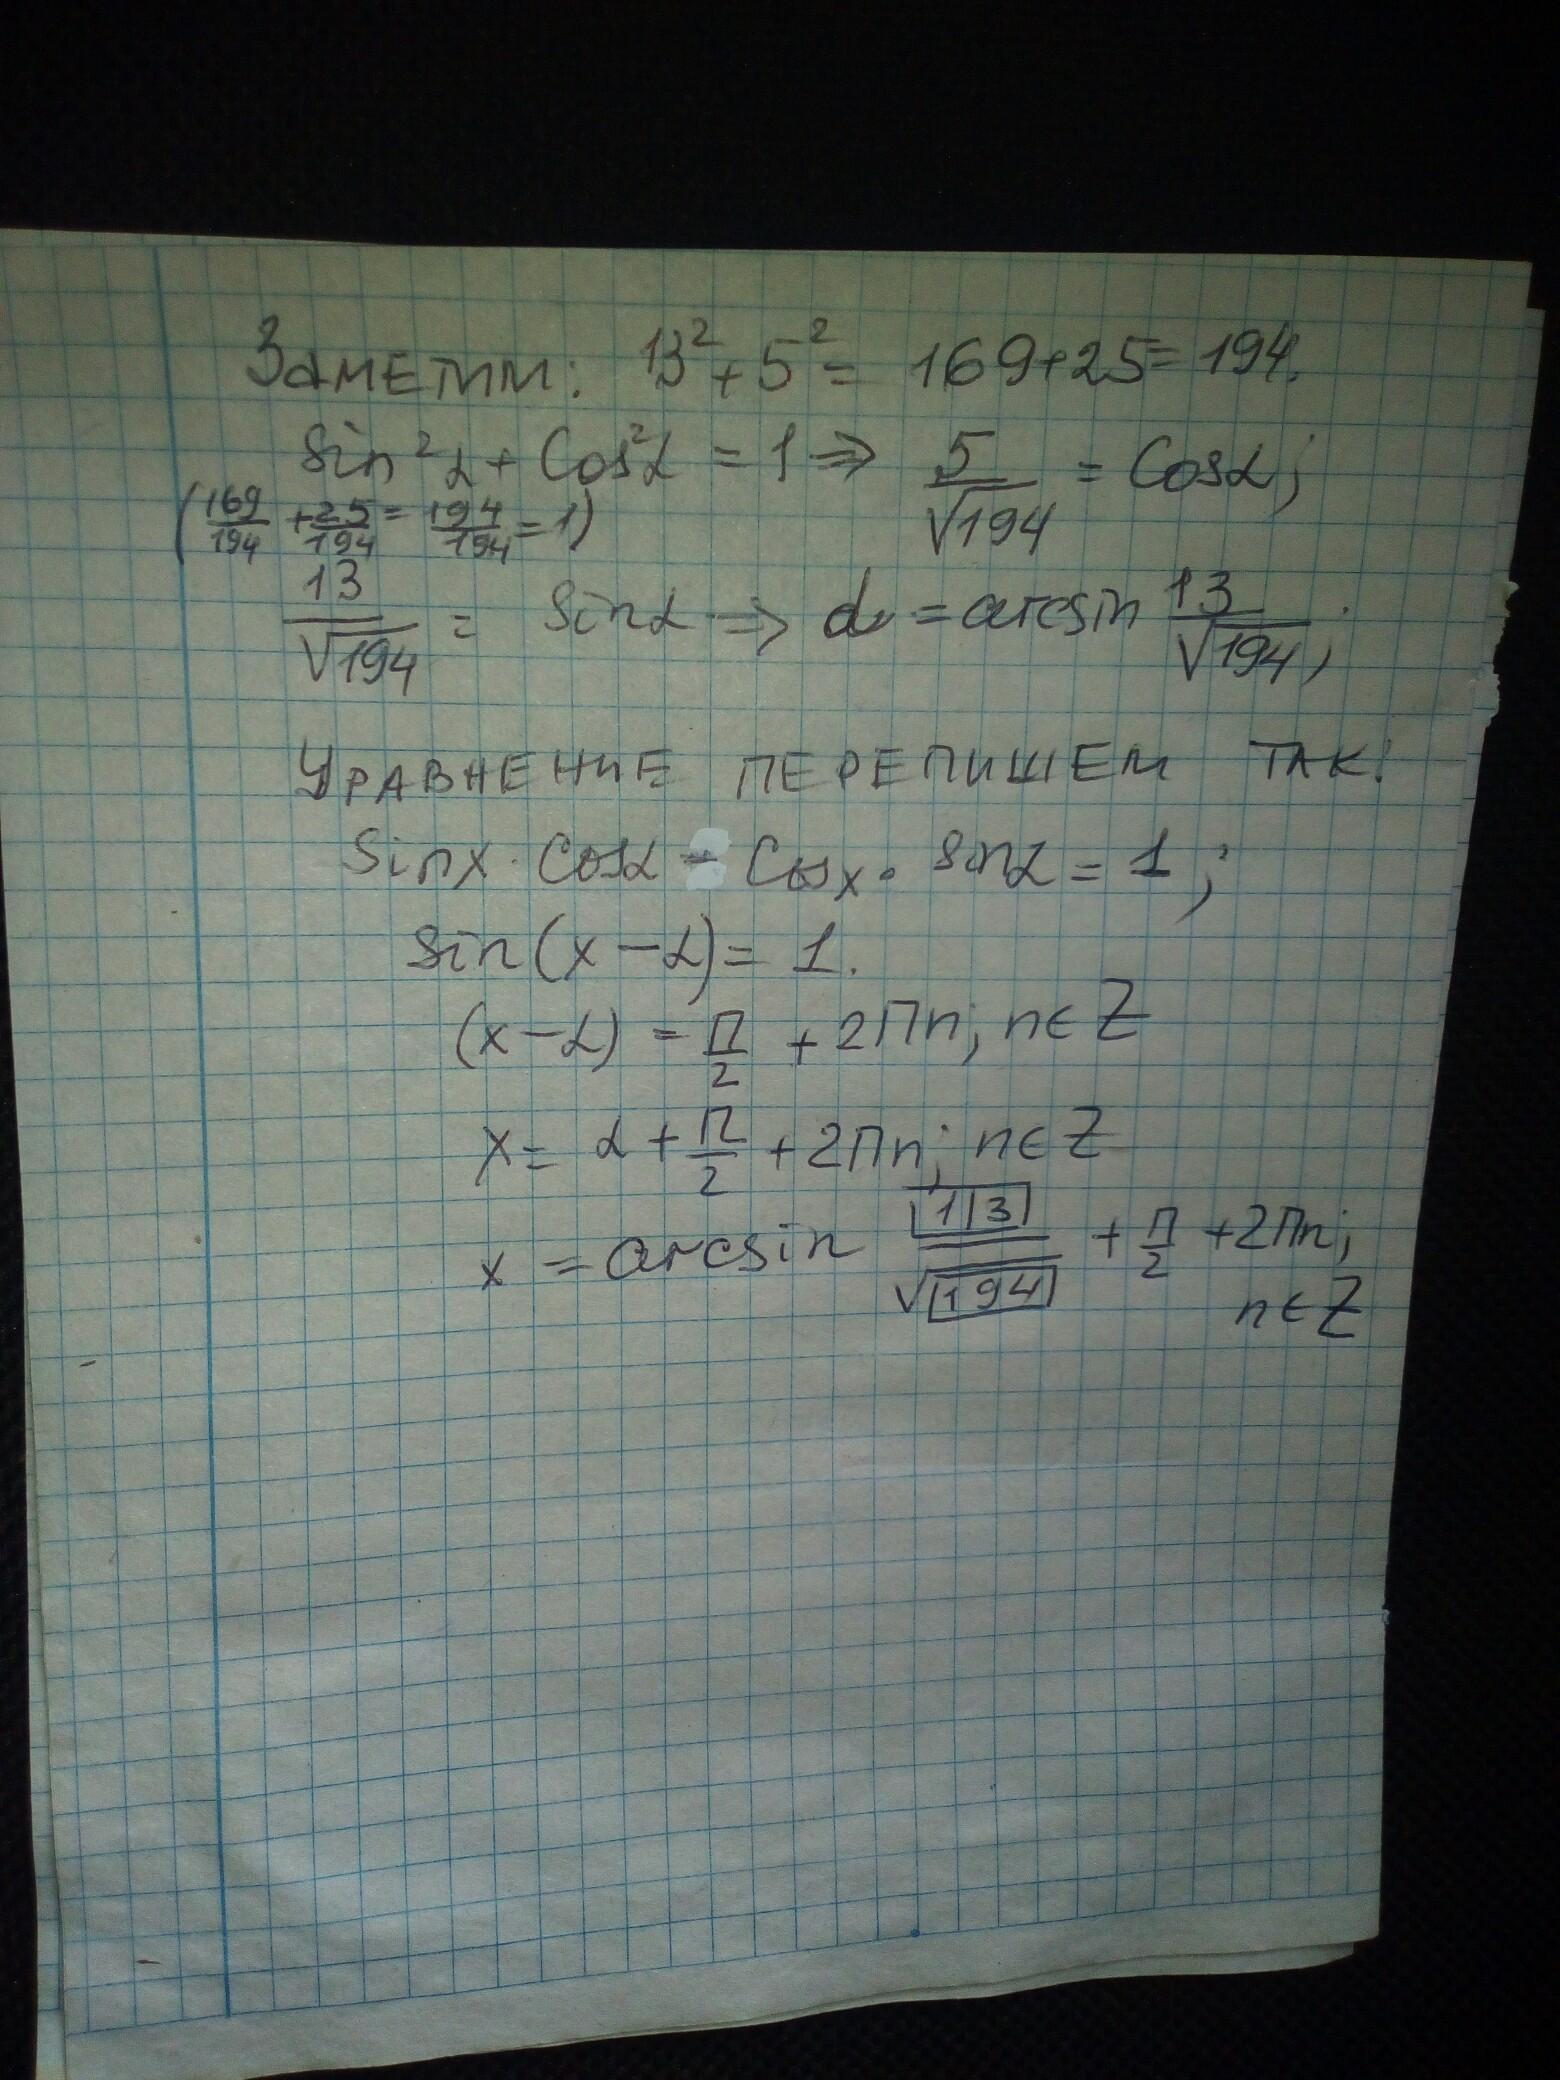 Заметим: 13² + 5² = 169 + 25 = 194.
sin²α + cos²α = 1 ⇒ 5/√194 = cosα;
(169/194 + 25/194 = 194/194 = 1)
13/√194 = sinα ⇒ α = arcsin 13/√194;
Уравнение перепишем так:
sinx · cosα - cosx · sinα = 1;
sin(x - α) = 1.
(x - α) = П/2 + 2Пn; n ∈ Z
x = α + П/2 + 2Пn; n ∈ Z
x = arcsin 13/√194 + П/2 + 2Пn;
n ∈ Z